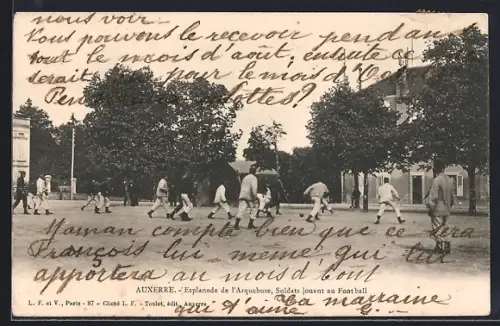 nous voir.
Vous pouvons le recevoir pendant
tout le mois d'août, ensuite ce
serait pour le mois d'Oc
Pen lottes?
AUXERRE. - Esplanade de l'Arquebuse, Soldats jouant au Football
Maman compte bien que ce sera
François lui même, qui lui
apportera au mois d'août
L. F. et V., Paris - 87 - Cliché L. F. - Toulot, édit. Auxerre
qui t'aime Ta marraine
G.